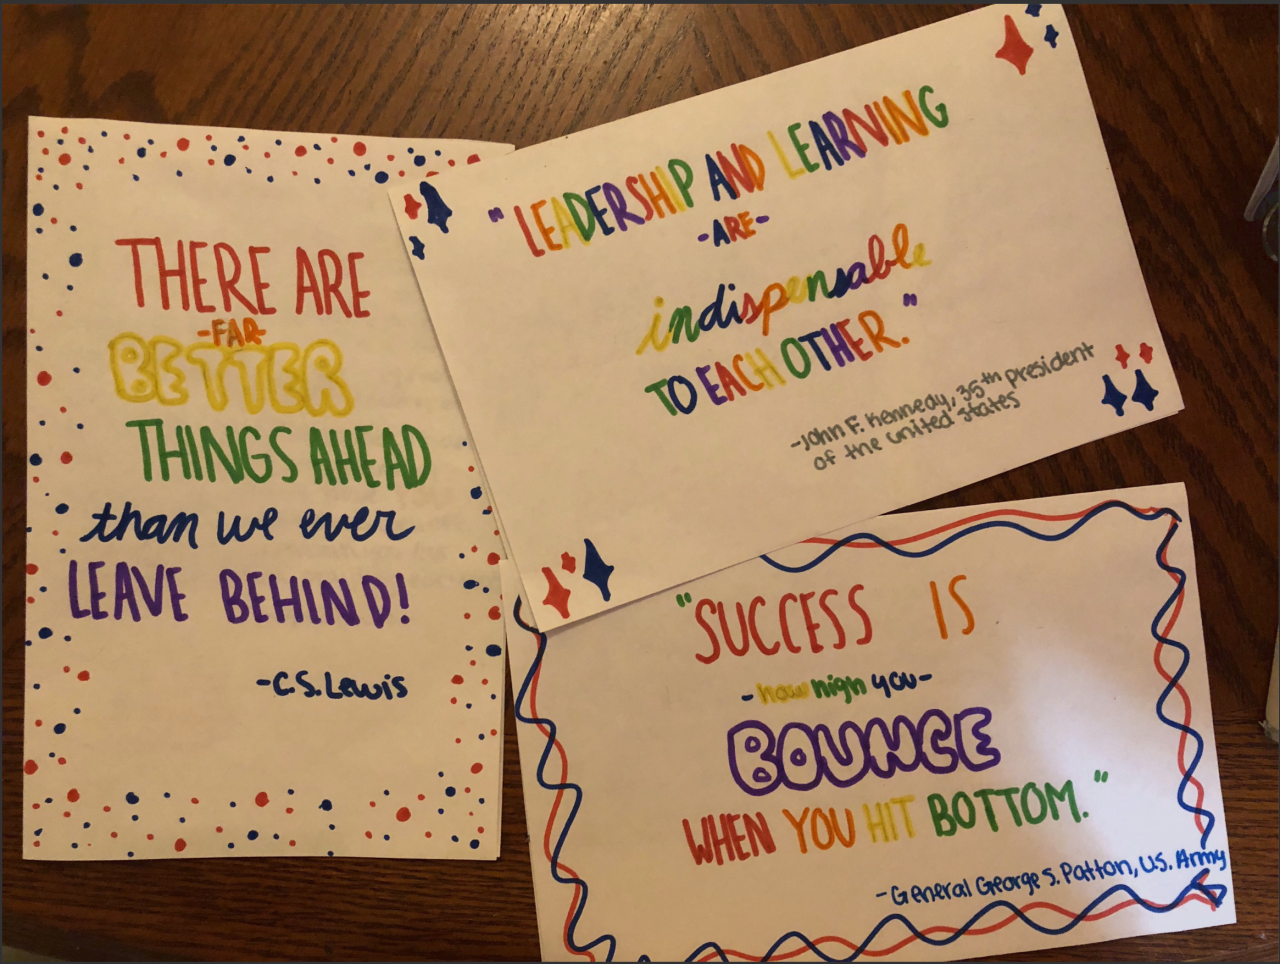 THERE ARE
-FAR-
BETTER
THINGS AHEAD
than we ever
LEAVE BEHIND!
-C.S. Lewis
"LEADERSHIP AND LEARNING
-ARE-
indispensable
TO EACH OTHER."
-John F. Kennedy, 35th president
of the united states
"SUCCESS IS
-how high you-
BOUNCE
WHEN YOU HIT BOTTOM."
-General George S. Patton, U.S. Army